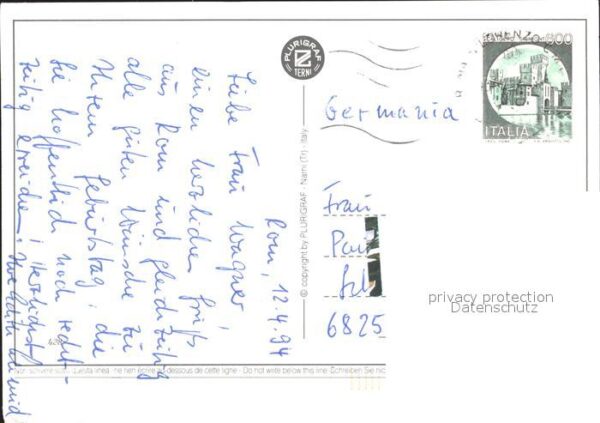 Rom, 12.4.94
Liebe Frau Wagner,
einen herzlichen Gruß
aus Rom und gleichzeitig
alle guten Wünsche zu
Ihrem Geburtstag, die
Sie hoffentlich noch recht-
zeitig erreichen. Herzlichst
PLURIGRAF
TERNI
© copyright by PLURIGRAF - Narni (Tr) - Italy
800
ITALIA
Germania
Frau
6825
privacy protection
Datenschutz
Non scrivere sotto questa linea - Ne rien écrire au dessous de cette ligne - Do not write below this line - Schreiben Sie nic